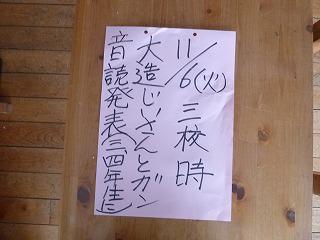 11/6(火)三校時
大造じいさんとガン
音読発表(三、四年生に)